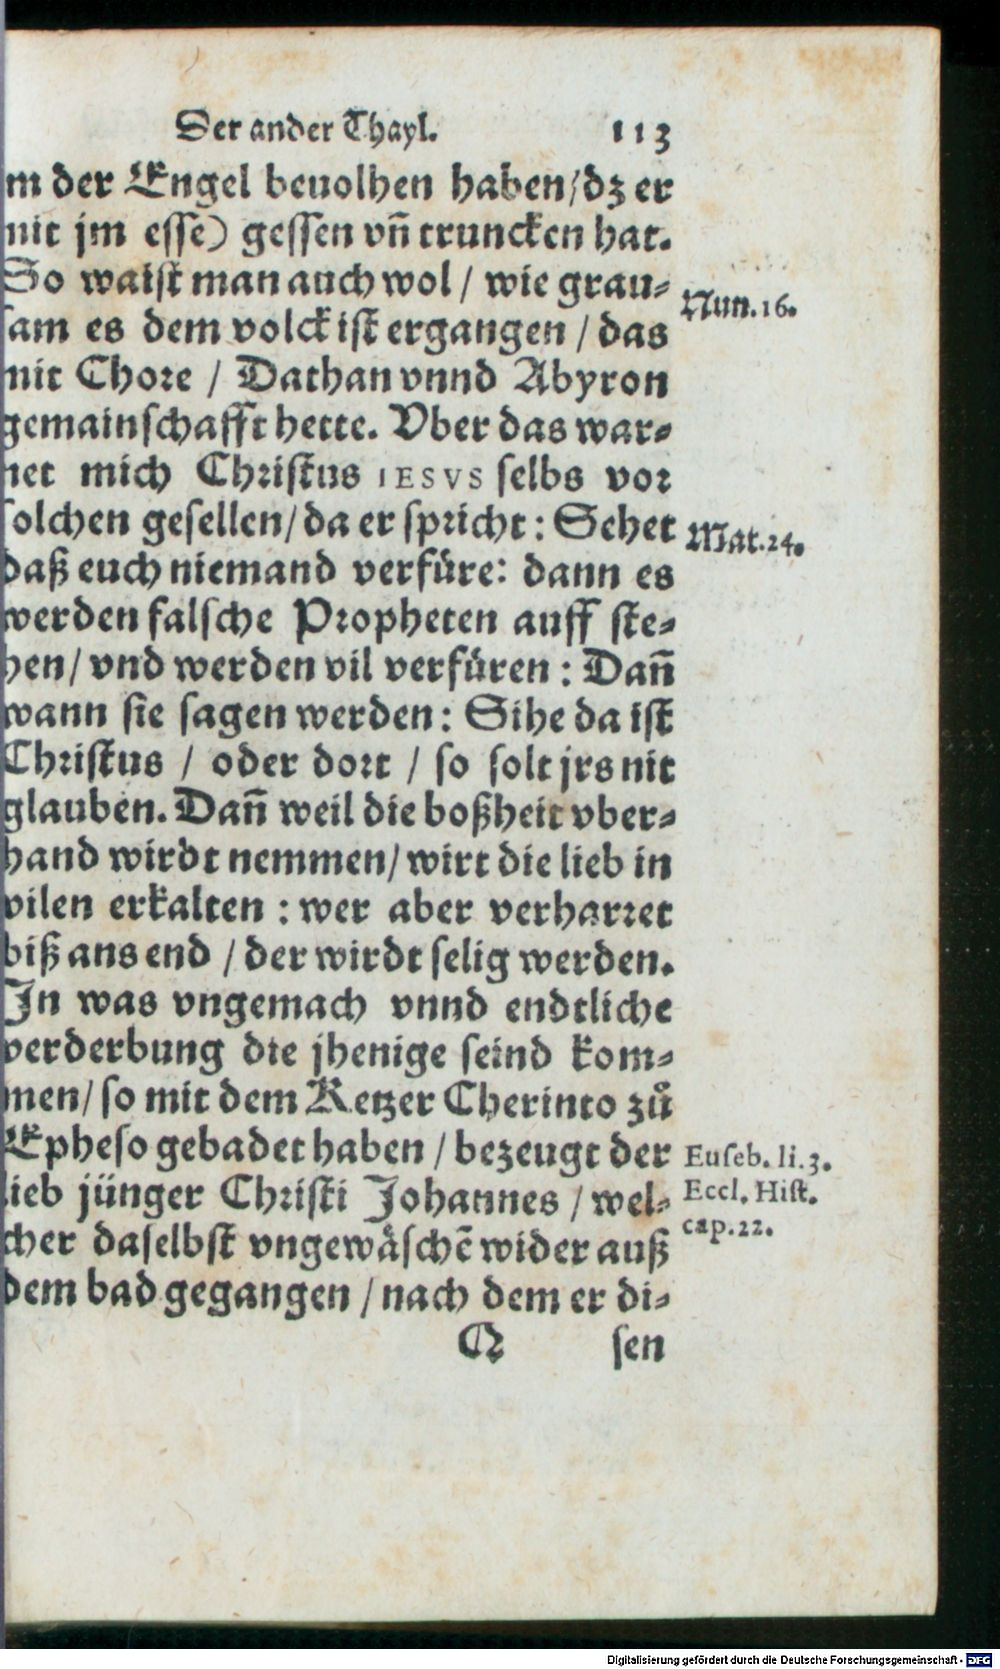 Der ander Thayl. 113
m der Engel beuolhen haben/dz er
mit jm esse) gessen vn̄ truncken hat.
So waist man auch wol / wie grau-
Nun.16.
sam es dem volck ist ergangen / das
mit Chore / Dathan vnnd Abyron
gemainschafft hette. Vber das war-
net mich Christus IESVS selbs vor
solchen gesellen/da er spricht: Sehet
Mat.24.
daß euch niemand verfüre: dann es
werden falsche Propheten auff ste-
hen/ vnd werden vil verfüren: Dan̄
wann sie sagen werden: Sihe da ist
Christus / oder dort / so solt jrs nit
glauben. Dan̄ weil die boßheit vber-
hand wirdt nemmen/ wirt die lieb in
vilen erkalten : wer aber verharret
biß ans end / der wirdt selig werden.
In was vngemach vnnd endtliche
verderbung die jhenige seind kom-
men/ so mit dem Ketzer Cherinto zů
Epheso gebadet haben / bezeugt der
Euseb. li.3.
lieb jünger Christi Johannes / wel-
Eccl. Hist.
cap.22.
cher daselbst vngewäschē wider auß
dem bad gegangen / nach dem er di-
Q sen
Digitalisierung gefördert durch die Deutsche Forschungsgemeinschaft - DFG